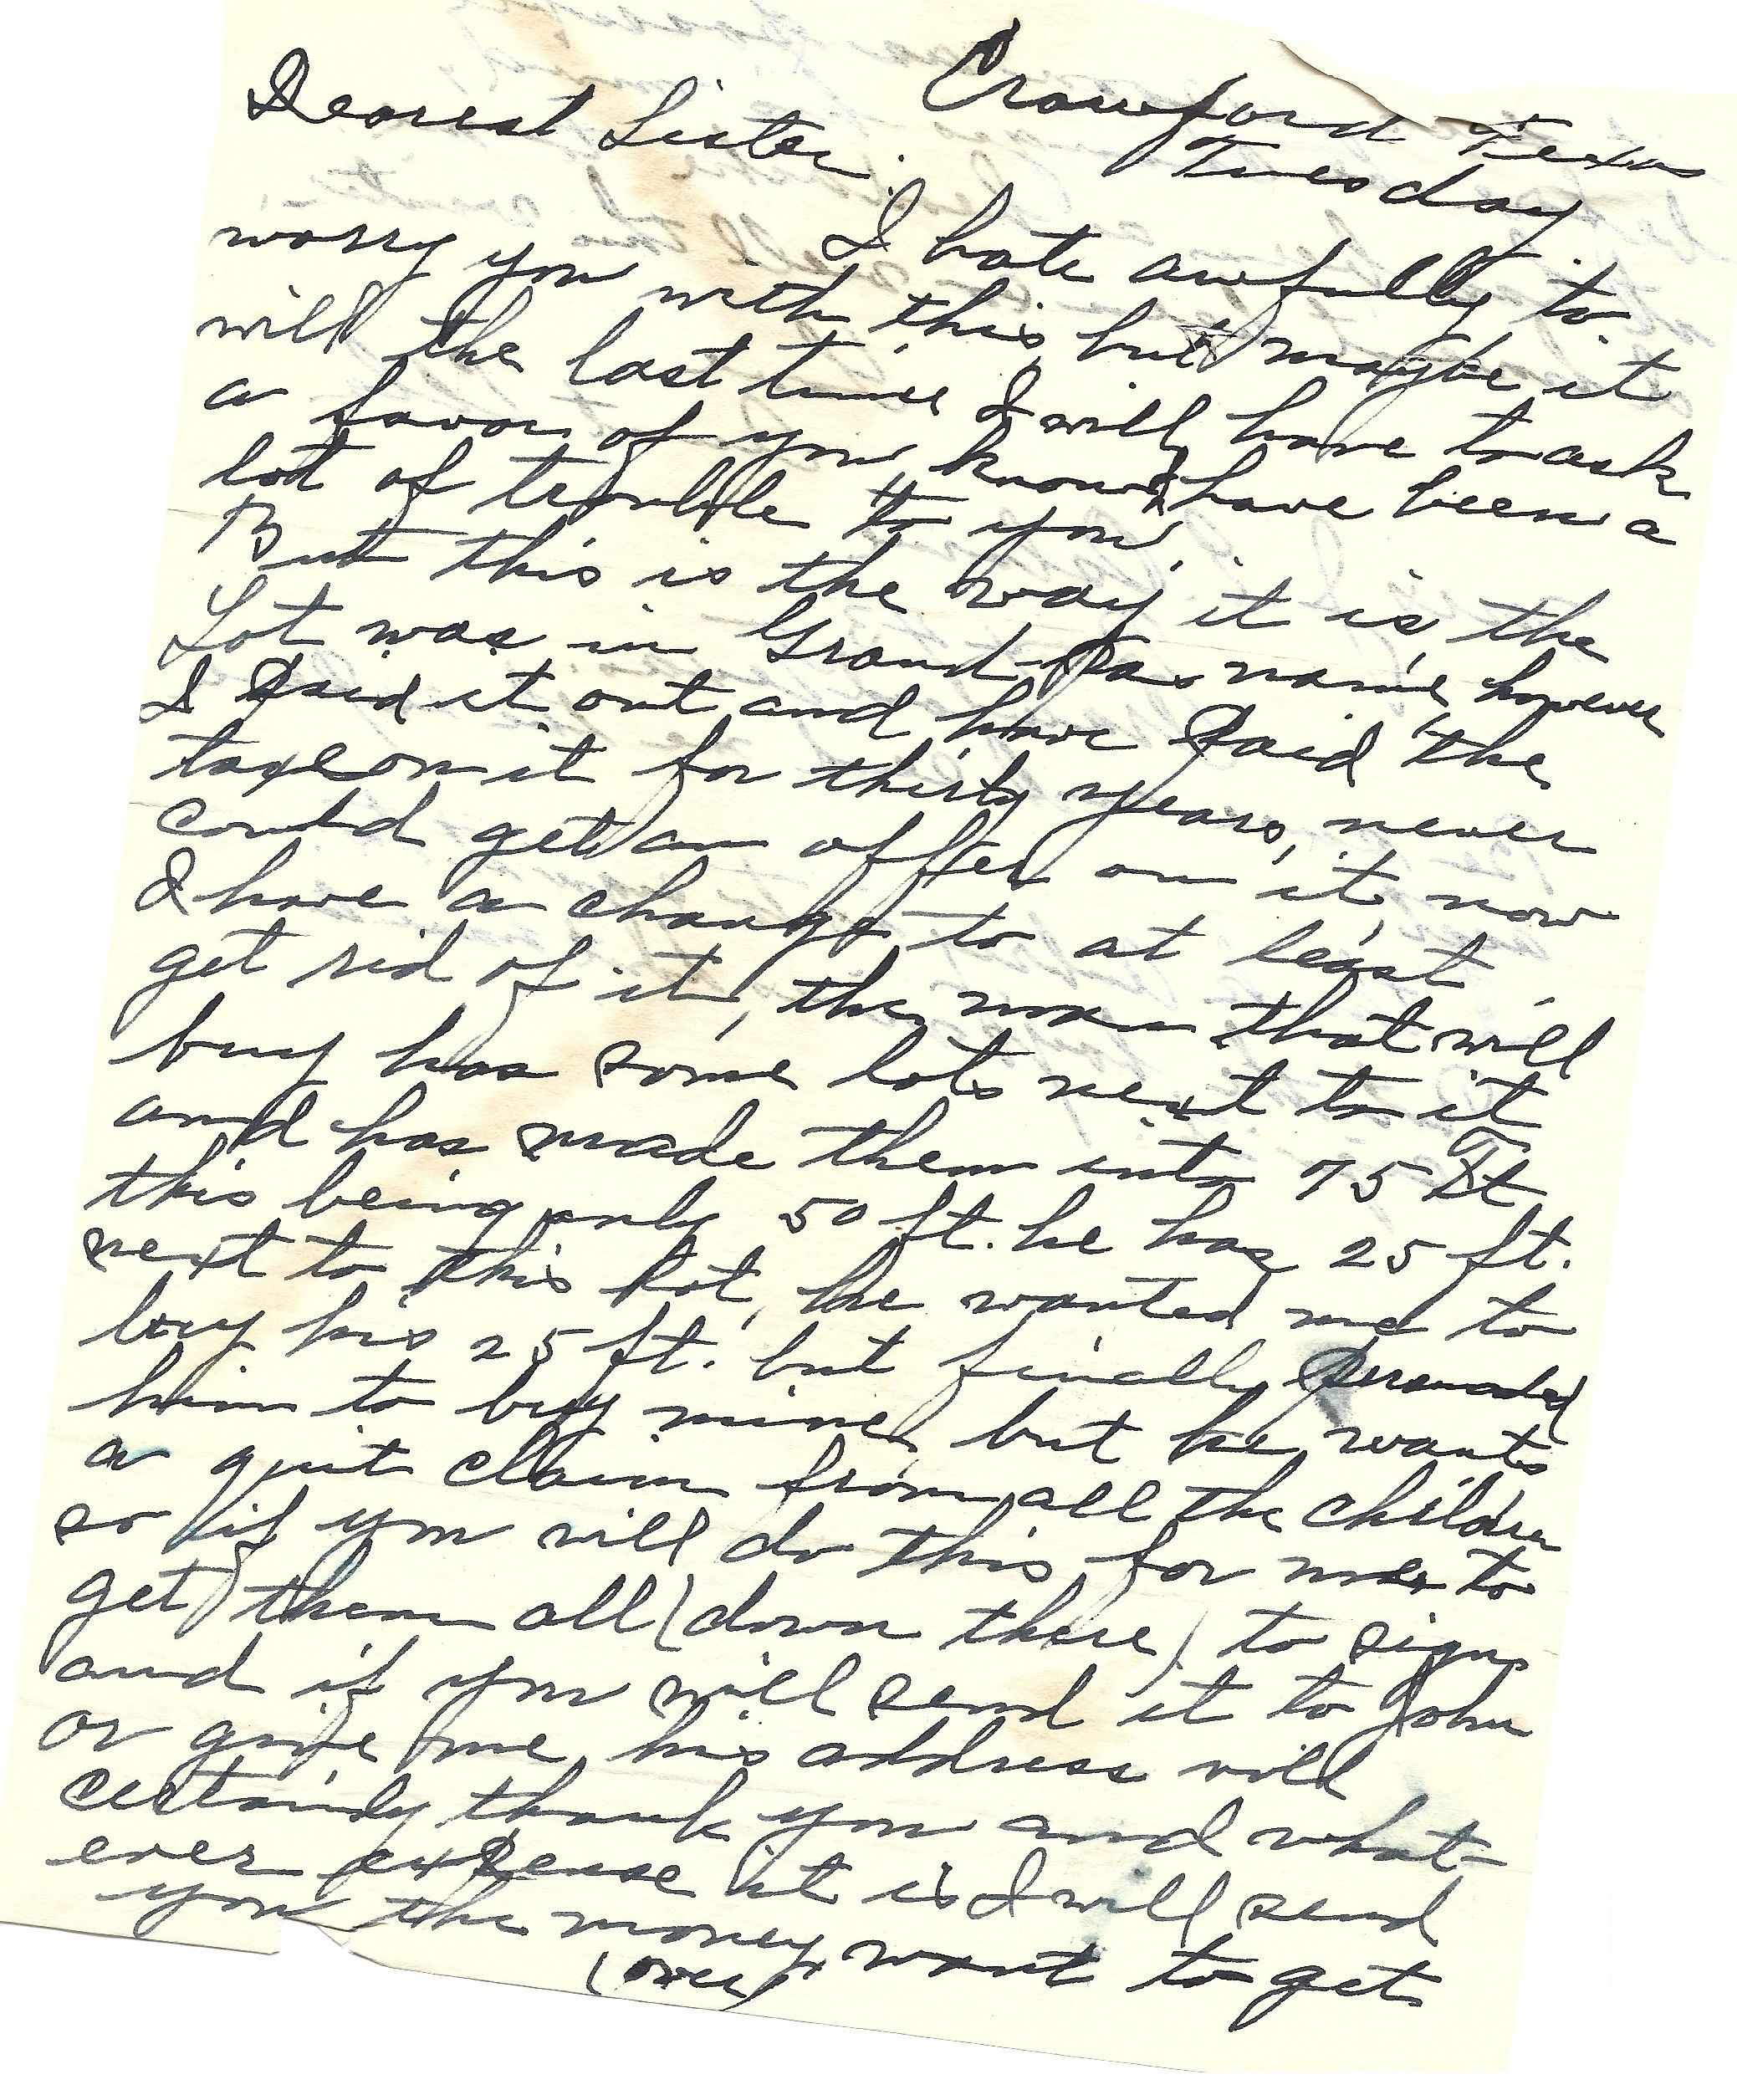 Crawford Texas
Tuesday.
Dearest Sister.
I hate awfully to
worry you with this but maybe it
will the last time I will have to ask
a favor of you, know I have been a
lot of trouble to you.
But this is the way it is, the
Lot was in Grand-Pas name however
I Paid it out and have Paid the
taxe on it for thirty years, never
could get an offer on it, now
I have a change to at least
get rid of it, the man that will
buy has some lots next to it
and has made them into 75 Ft
this being only 50 ft. he has 25 ft.
next to this lot, he wanted me to
buy his 25 ft. but finally Persuaded
him to buy mine, but he wants
a quit claim from all the children
so if you will do this for me to
get them all (down there) to sign
and if you will send it to John
or give me his address will
certainly thank you and what-
ever exPense it is I will send
you the money, want to get
(over)